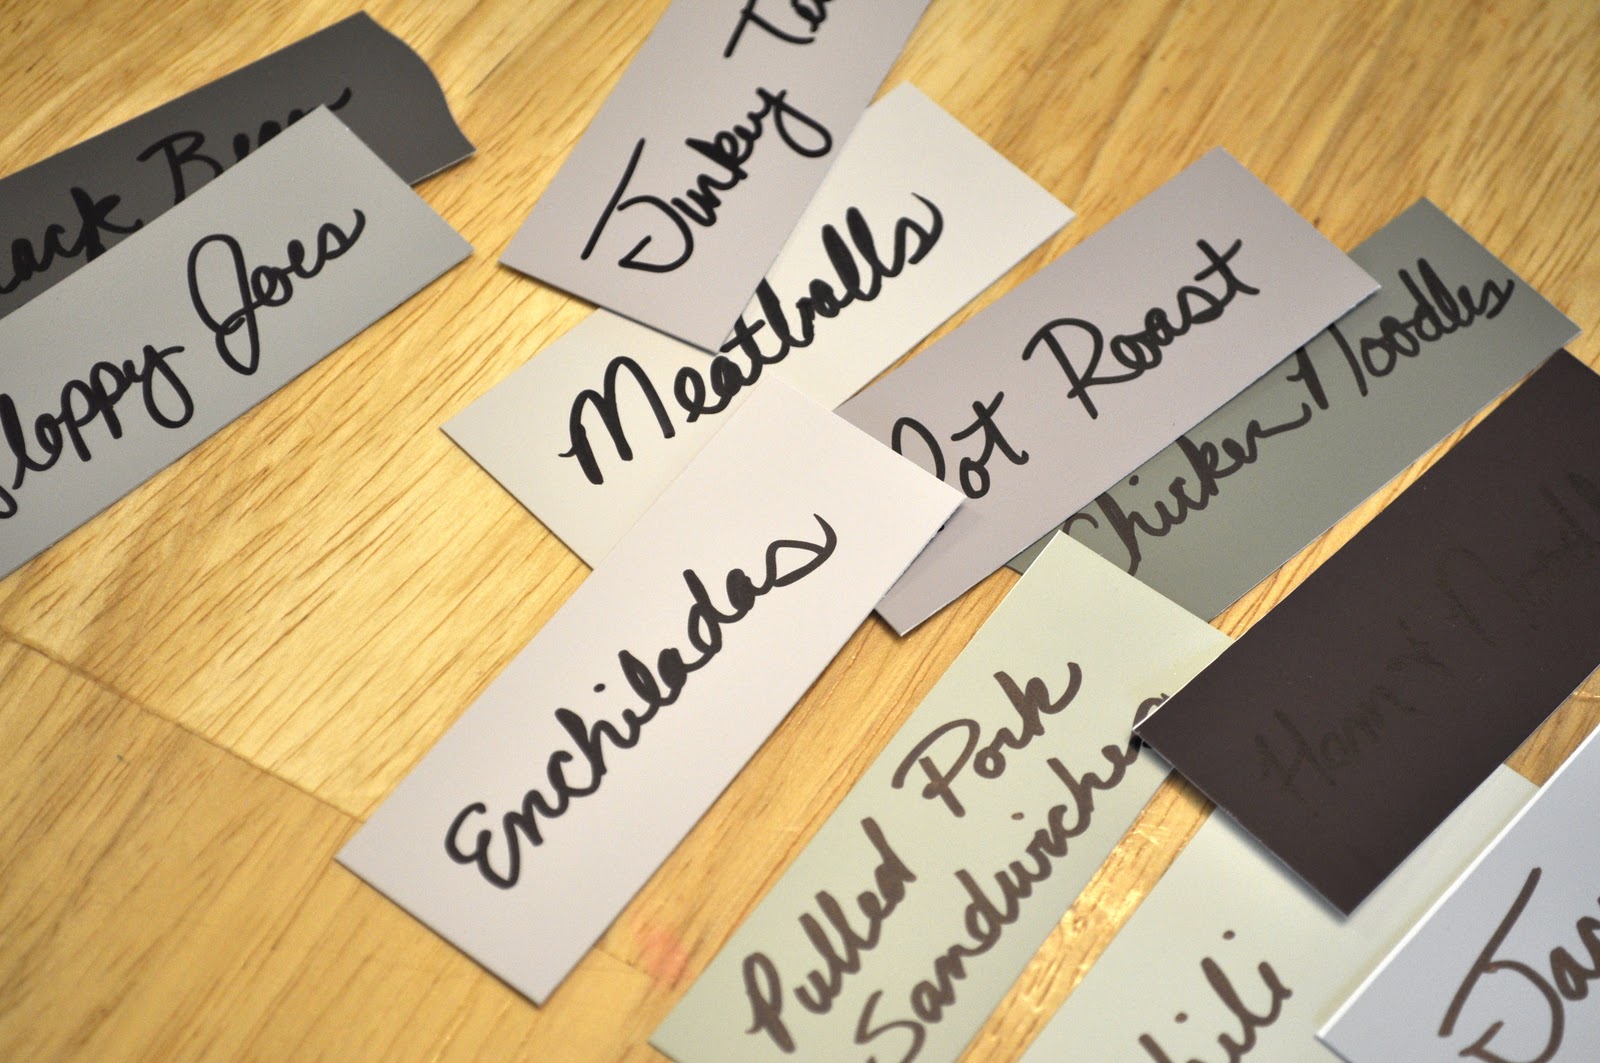 lack Bean
Sloppy Joes
Turkey Ta
Meatballs
Pot Roast
Chicken Noodles
Enchiladas
Pulled Pork
Sandwiches
Ham &
hili